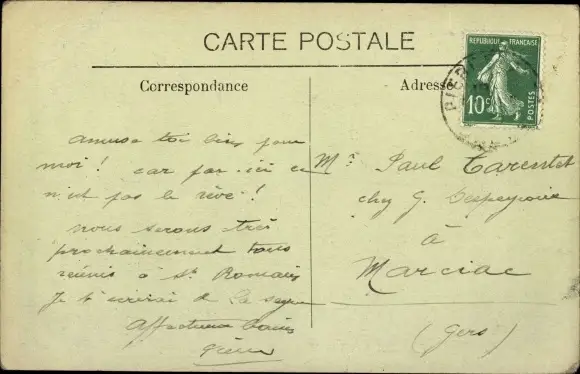 CARTE POSTALE
Correspondance
Adresse
REPUBLIQUE FRANÇAISE
10c
POSTES
amuse toi bien pour
moi ! car par ici ce
n'est pas le rêve !
nous serons très
prochainement tous
réunis à St Romain
Je t'écrirai de La
Affectueux baisers
Mr Paul
chez G.
à
Marciac
(Gers)